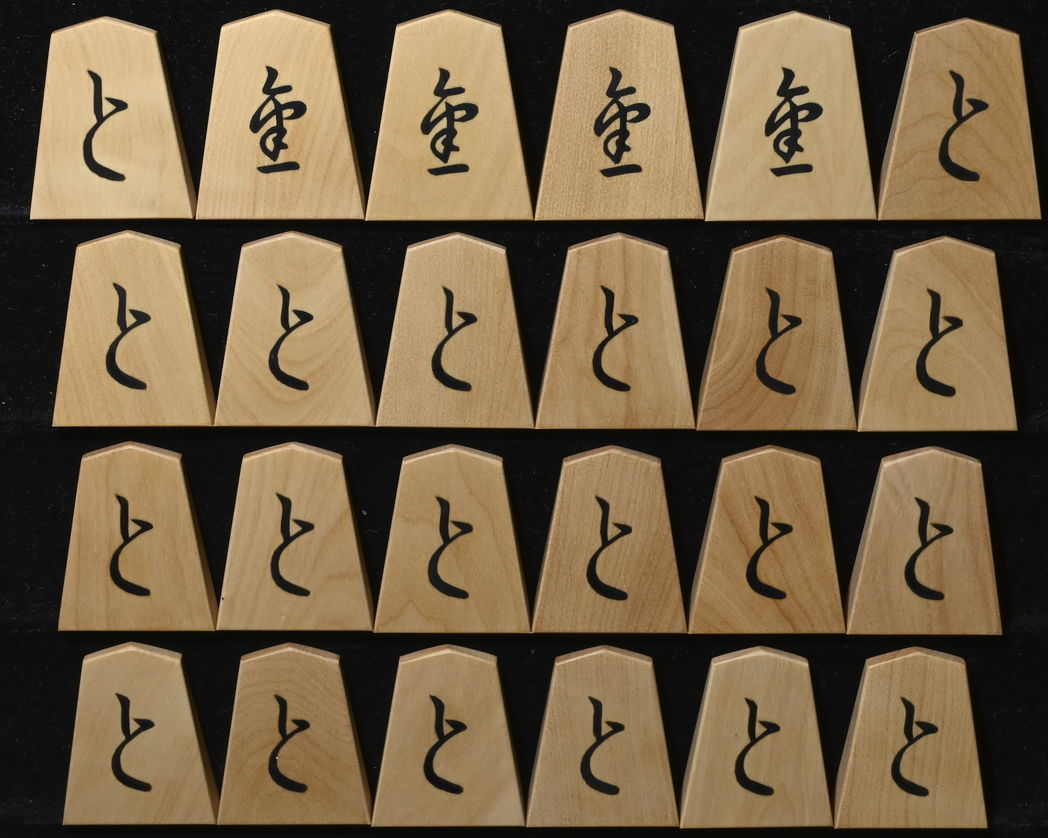 と 金 金 金 金 と
と と と と と と
と と と と と と
と と と と と と